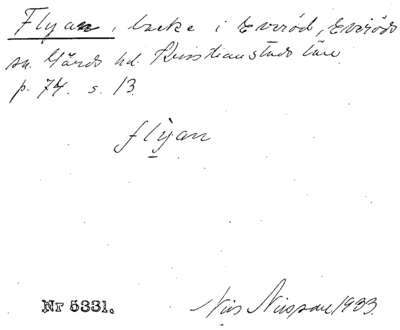 Flyan, backe i Everöd, Everöds
sn. Gärds hd. Kristianstads län.
p. 74. s. 13.
flỳan
Nr 5331. Nils Nilsson 1933.